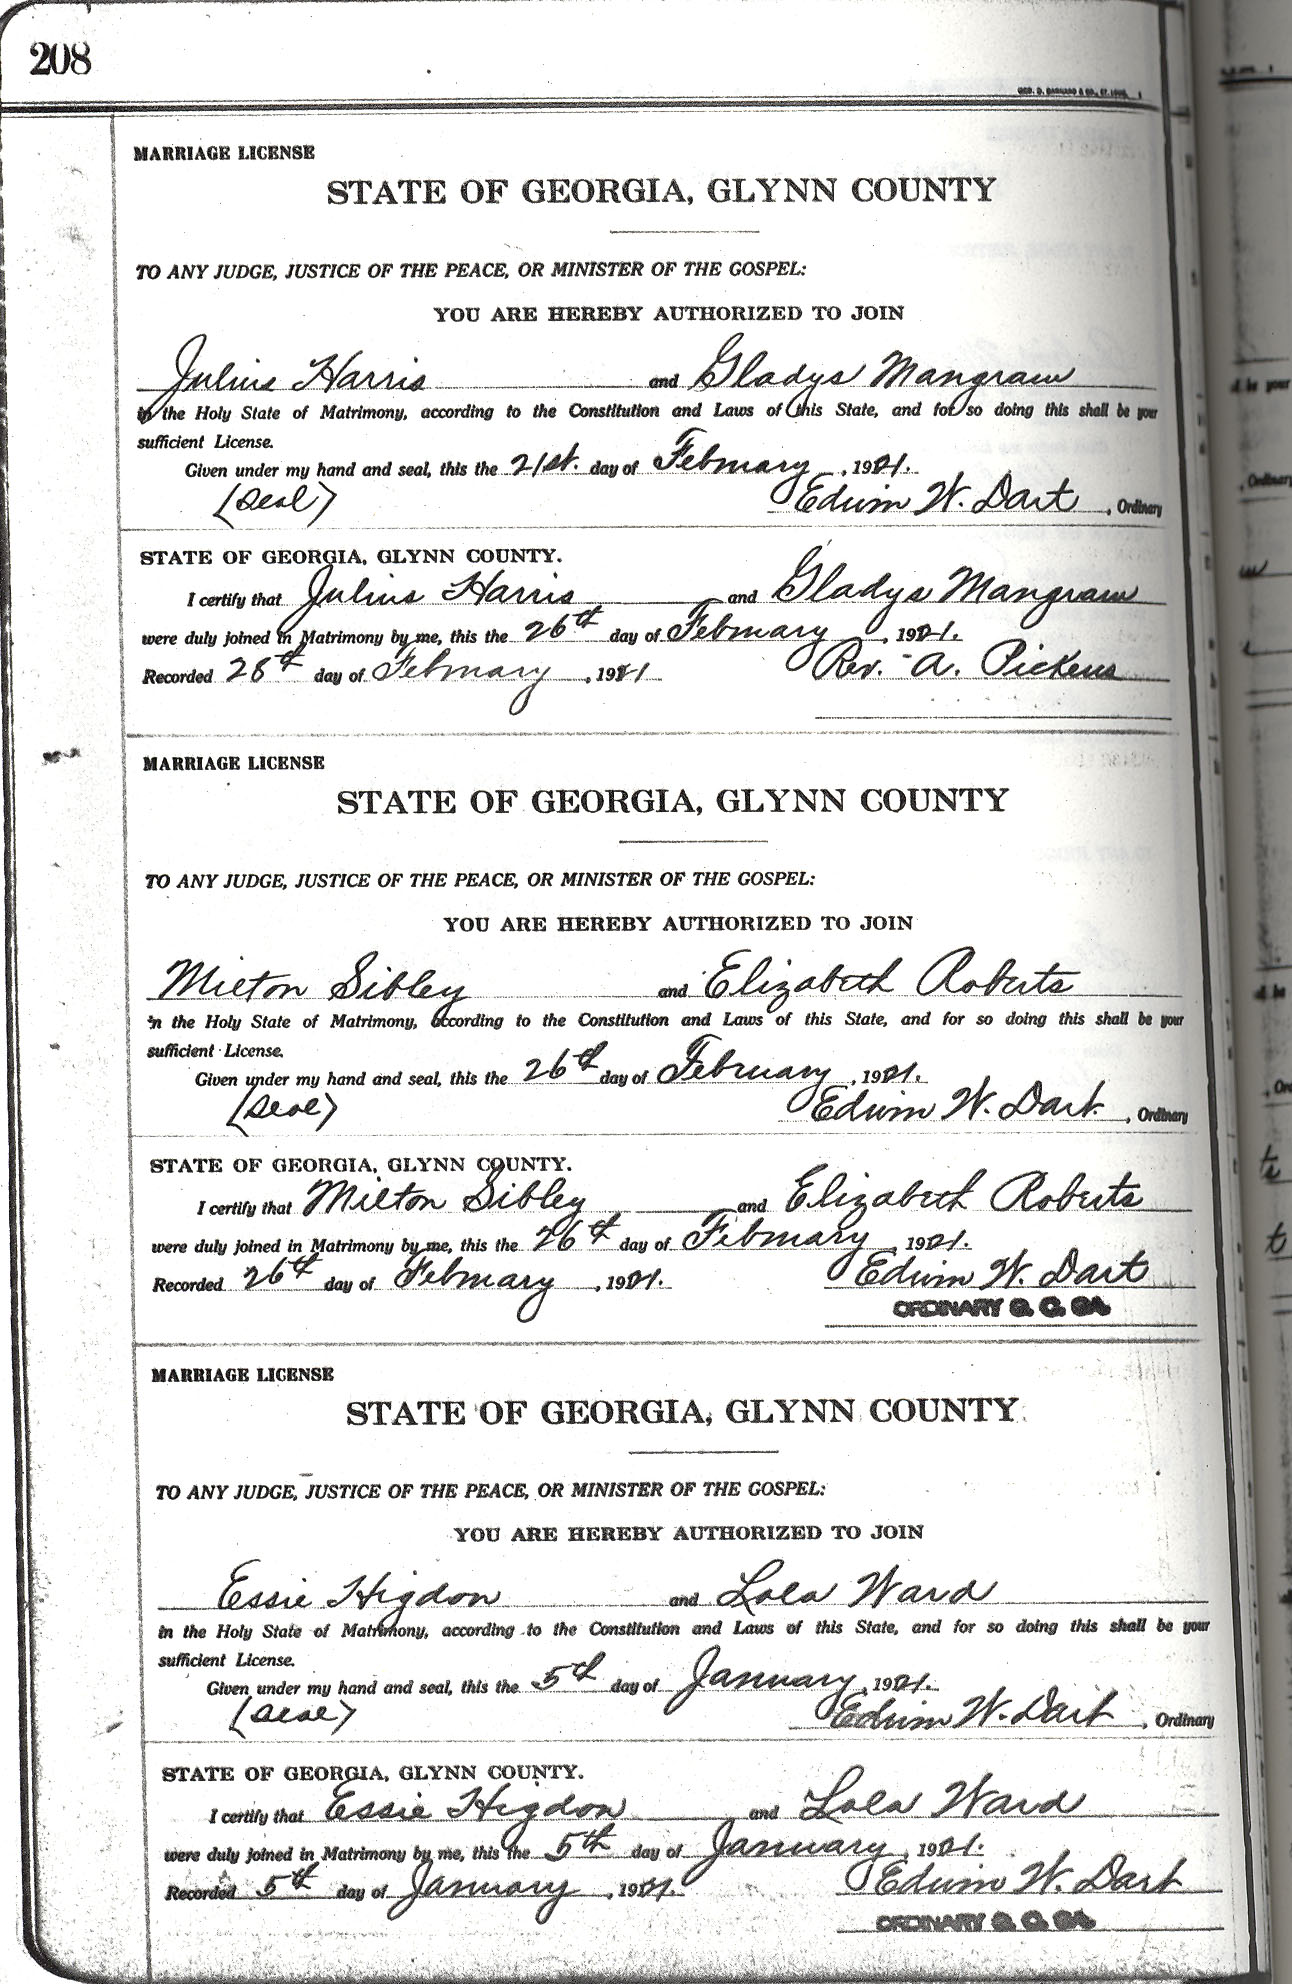 208
GEO. D. BARNARD & CO., ST. LOUIS.
MARRIAGE LICENSE
STATE OF GEORGIA, GLYNN COUNTY
TO ANY JUDGE, JUSTICE OF THE PEACE, OR MINISTER OF THE GOSPEL:
YOU ARE HEREBY AUTHORIZED TO JOIN
Julius Harris and Gladys Mangraw
in the Holy State of Matrimony, according to the Constitution and Laws of this State, and for so doing this shall be your
sufficient License.
Given under my hand and seal, this the 21st. day of February, 1921.
(Seal) Edwin W. Dart, Ordinary
STATE OF GEORGIA, GLYNN COUNTY.
I certify that Julius Harris and Gladys Mangraw
were duly joined in Matrimony by me, this the 26th day of February, 1921.
Recorded 28th day of February, 1921 Rev. A. Pickens
MARRIAGE LICENSE
STATE OF GEORGIA, GLYNN COUNTY
TO ANY JUDGE, JUSTICE OF THE PEACE, OR MINISTER OF THE GOSPEL:
YOU ARE HEREBY AUTHORIZED TO JOIN
Milton Sibley and Elizabeth Roberts
in the Holy State of Matrimony, according to the Constitution and Laws of this State, and for so doing this shall be your
sufficient License.
Given under my hand and seal, this the 26th day of February, 1921.
(Seal) Edwin W. Dart, Ordinary
STATE OF GEORGIA, GLYNN COUNTY.
I certify that Milton Sibley and Elizabeth Roberts
were duly joined in Matrimony by me, this the 26th day of February, 1921.
Recorded 26th day of February, 1921. Edwin W. Dart
ORDINARY G. C. GA.
MARRIAGE LICENSE
STATE OF GEORGIA, GLYNN COUNTY
TO ANY JUDGE, JUSTICE OF THE PEACE, OR MINISTER OF THE GOSPEL:
YOU ARE HEREBY AUTHORIZED TO JOIN
Essie Higdon and Lola Ward
in the Holy State of Matrimony, according to the Constitution and Laws of this State, and for so doing this shall be your
sufficient License.
Given under my hand and seal, this the 5th day of January, 1921.
(Seal) Edwin W. Dart, Ordinary
STATE OF GEORGIA, GLYNN COUNTY.
I certify that Essie Higdon and Lola Ward
were duly joined in Matrimony by me, this the 5th day of January, 1921.
Recorded 5th day of January, 1921. Edwin W. Dart
ORDINARY G. C. GA.